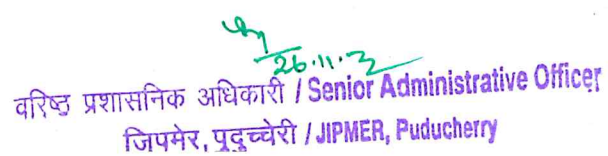 26.11.2
वरिष्ठ प्रशासनिक अधिकारी / Senior Administrative Officer
जिपमेर, पुदुच्चेरी / JIPMER, Puducherry